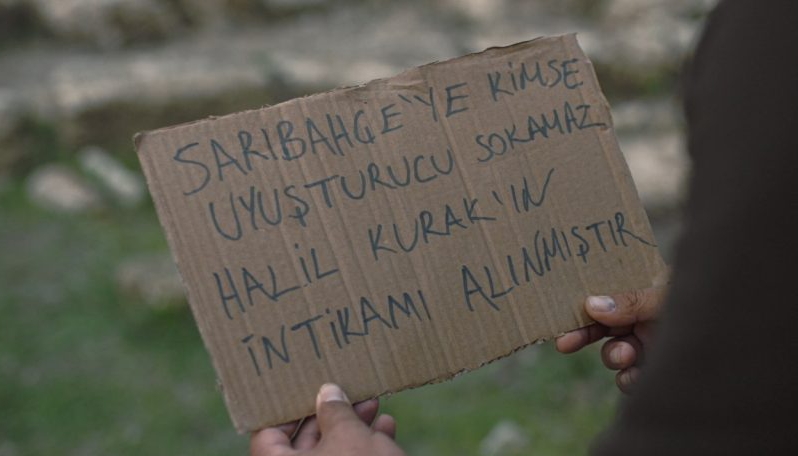 SARIBAHÇE'YE KİMSE
UYUŞTURUCU SOKAMAZ
HALİL KURAK'IN
İNTİKAMI ALINMIŞTIR